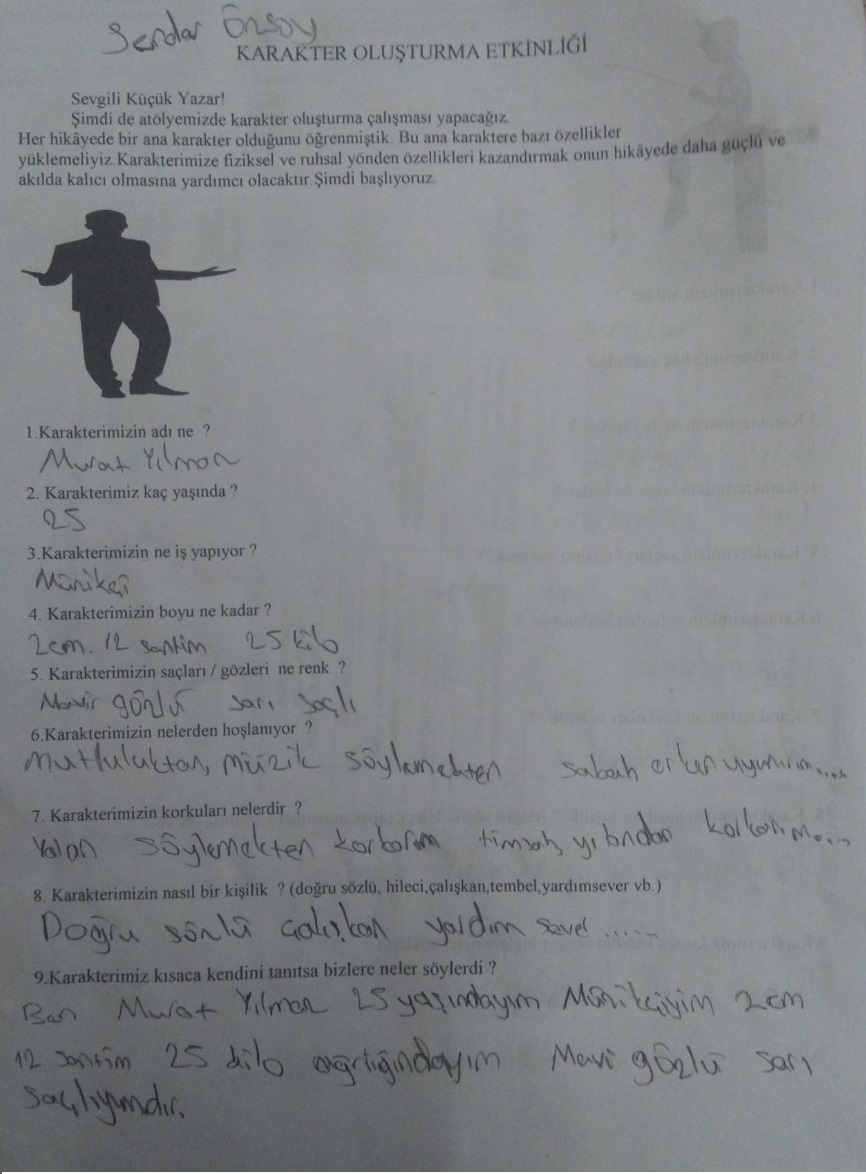 Serdar Özsoy
KARAKTER OLUŞTURMA ETKİNLİĞİ
Sevgili Küçük Yazar!
Şimdi de atölyemizde karakter oluşturma çalışması yapacağız.
Her hikâyede bir ana karakter olduğunu öğrenmiştik. Bu ana karaktere bazı özellikler
yüklemeliyiz.Karakterimize fiziksel ve ruhsal yönden özellikleri kazandırmak onun hikâyede daha güçlü ve
akılda kalıcı olmasına yardımcı olacaktır.Şimdi başlıyoruz.
1.Karakterimizin adı ne ?
Murat Yılmaz
2. Karakterimiz kaç yaşında ?
25
3.Karakterimizin ne iş yapıyor ?
Müzikçi
4. Karakterimizin boyu ne kadar ?
2cm. 12 santim 25 kilo
5. Karakterimizin saçları / gözleri ne renk ?
Mavir gözlü sarı saçlı
6.Karakterimizin nelerden hoşlanıyor ?
Mutluluktan, müzik söylemekten sabah erken uyunırım....
7. Karakterimizin korkuları nelerdir ?
Yalan söylemekten korkarım timsah, yılandan korkarım....
8. Karakterimizin nasıl bir kişilik ? (doğru sözlü, hileci,çalışkan,tembel,yardımsever vb.)
Doğru sözlü çalışkan yardım sever ......
9.Karakterimiz kısaca kendini tanıtsa bizlere neler söylerdi ?
Ben Murat Yılmaz 25 yaşındayım Müzikçiyim 2cm
12 santim 25 kilo ağırlığındayım Mavi gözlü sarı
saçlıyımdır.